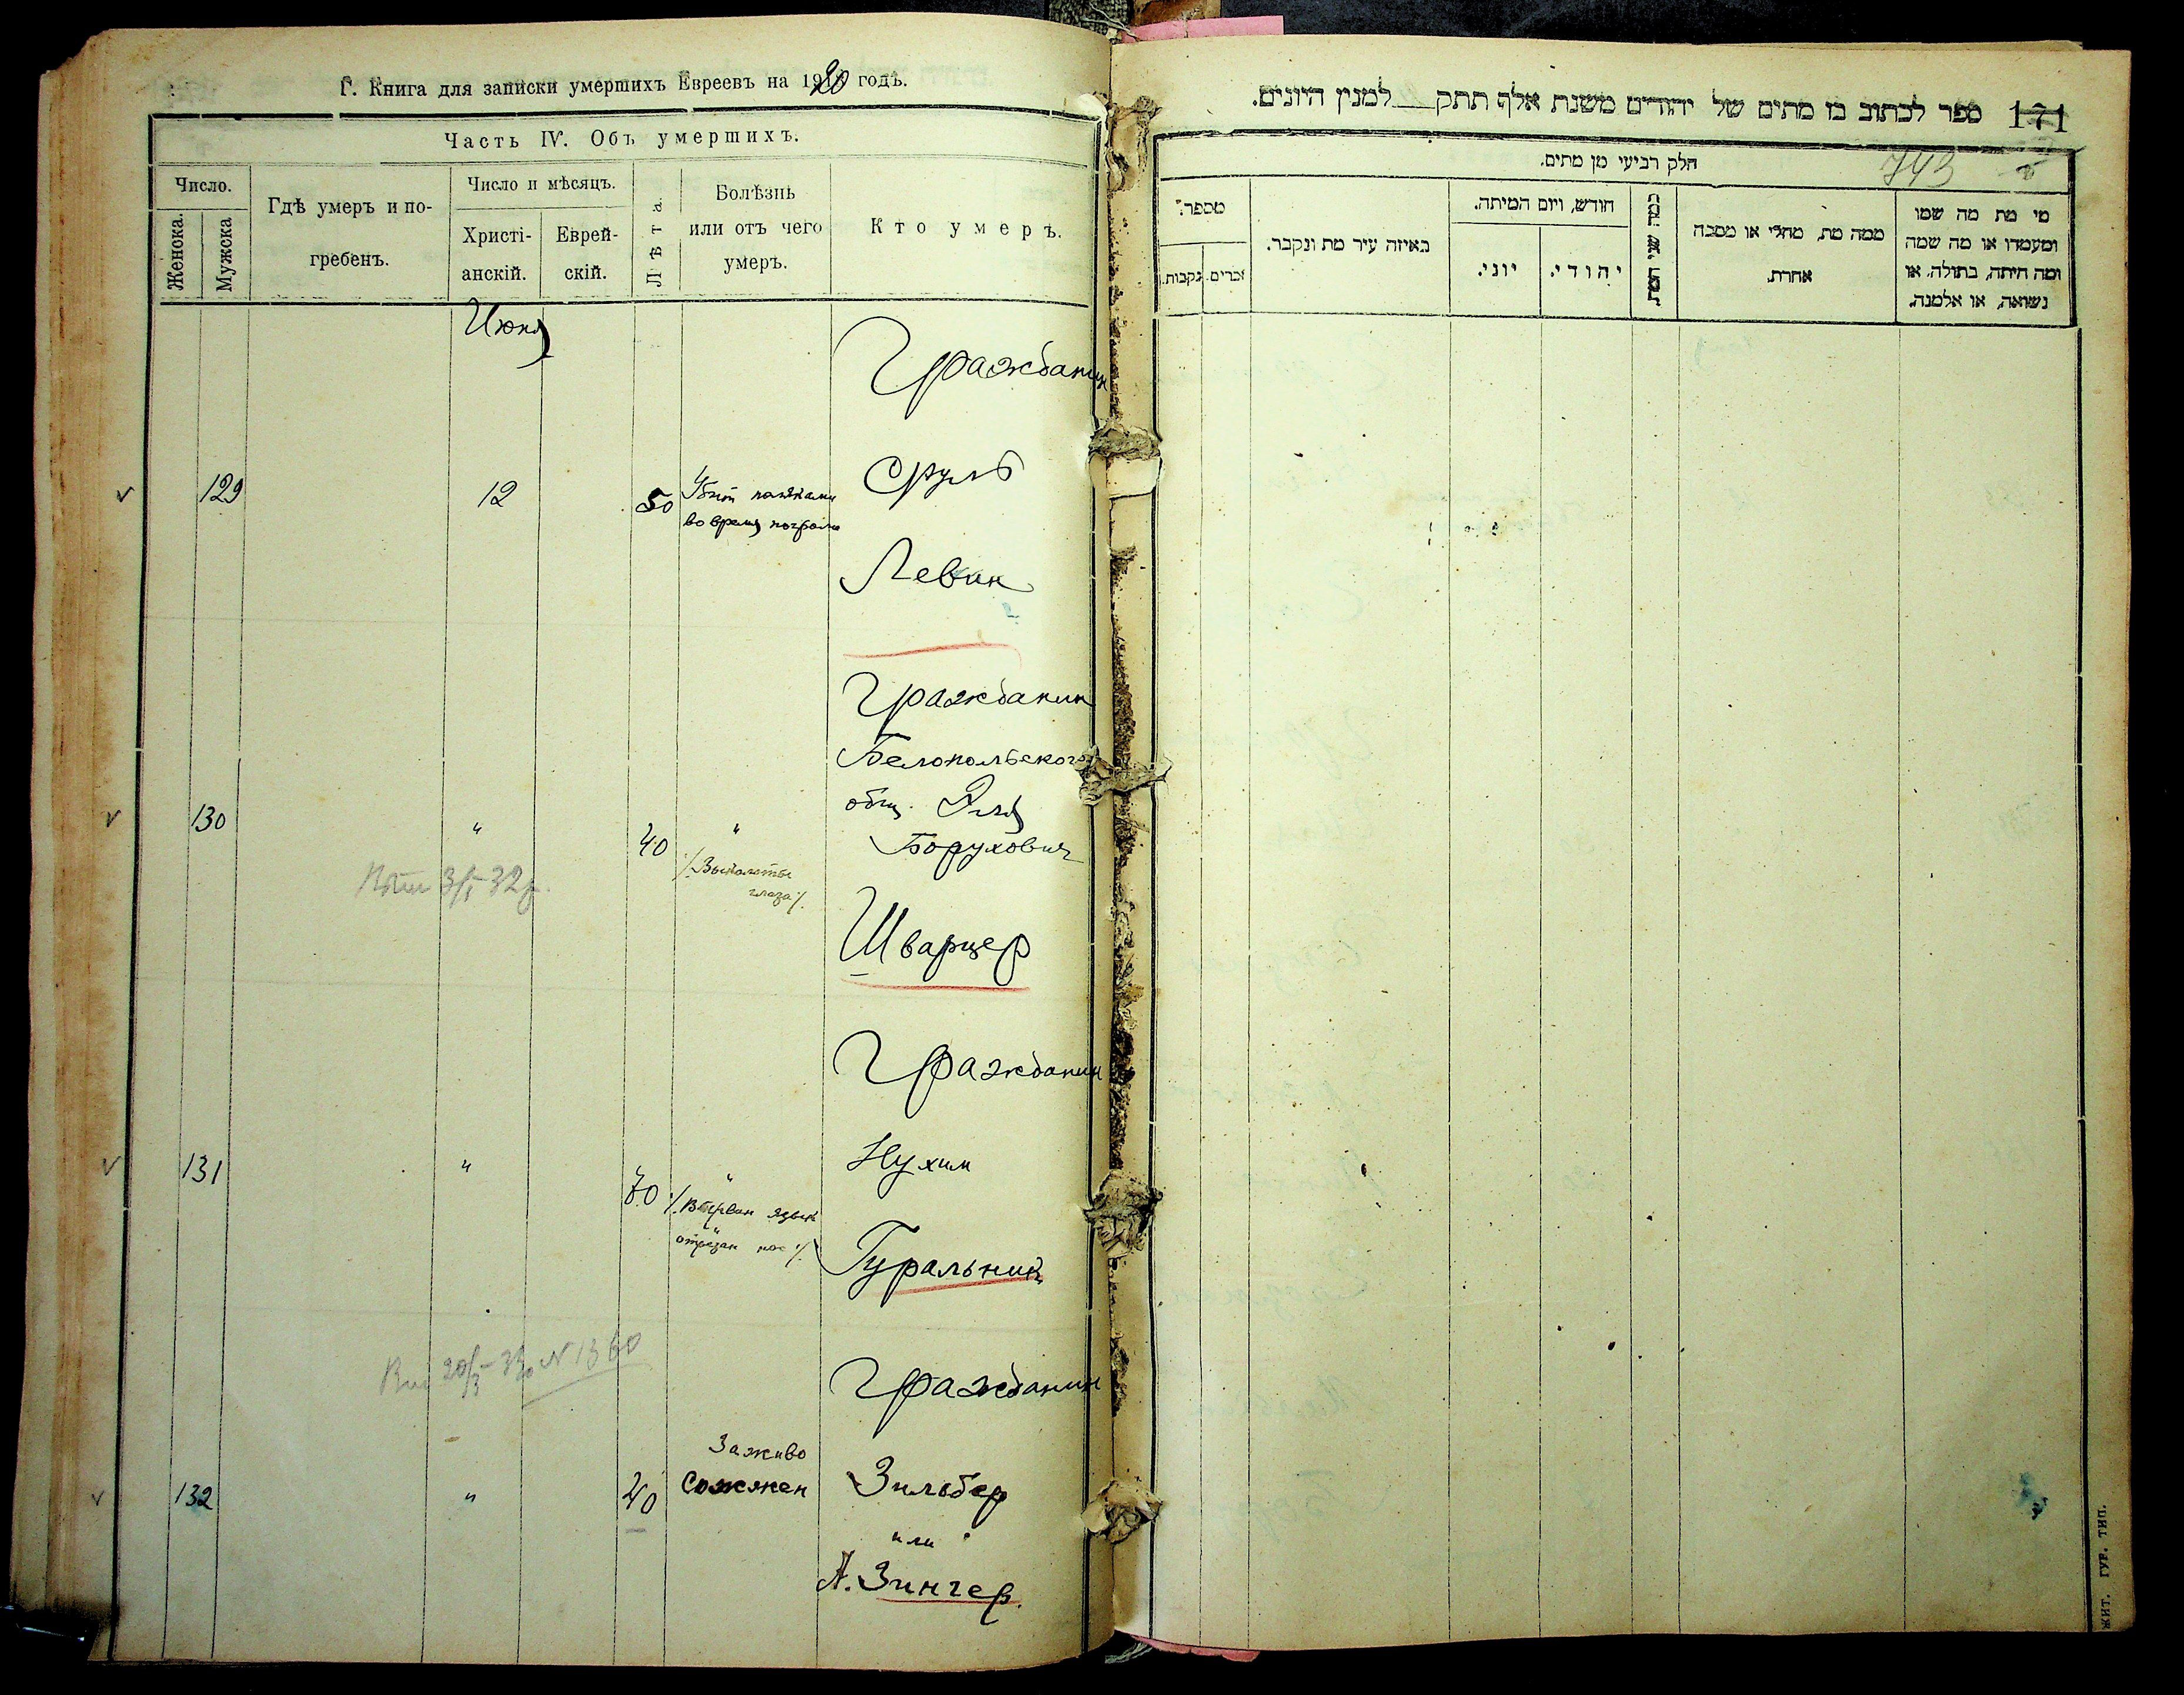 Г. Книга для записки умершихъ Евреевъ на 1920 годъ.
Часть IV. Объ умершихъ.
Число.
Женска.
Мужска
Гдѣ умеръ и по-
гребенъ.
Число и мѣсяцъ.
Христі-
анскій.
Еврей-
скій.
Лѣта.
Болѣзнь
или отъ чего
умеръ.
Кто умеръ.
Июня
Гражданин
129
12
50
Убит поляками
во время погрома
Сруль
Левин
Гражданин
Белопольского
общ. Эля
130
"
40
"
Борухович
/. Выколоты
глаза /.
3/I 32 г.
Шварцер
Гражданин
131
"
70
"
Нухим
/. Вырван язык
отрезан нос /.
Гуральник
N 1360
Гражданин
132
"
40
Заживо
Сожжен
Зильбер
или
А. Зингер.
ספר לכתוב בו מתים של יהודים משנת אלף תתק למנין היונים.
171
743
חלק רביעי מן מתים.
מספר.
נקבות.
זכרים.
באיזה עיר מת ונקבר.
חודש, ויום המיתה.
יוני.
יהודי.
כמה שני המת.
ממה מת, מחלי או מסבה
אחרת.
מי מת מה שמו
ומעמדו או מה שמה
ומה היתה, בתולה, או
נשואה, או אלמנה.
ЖИТ. ГУБ. ТИП.